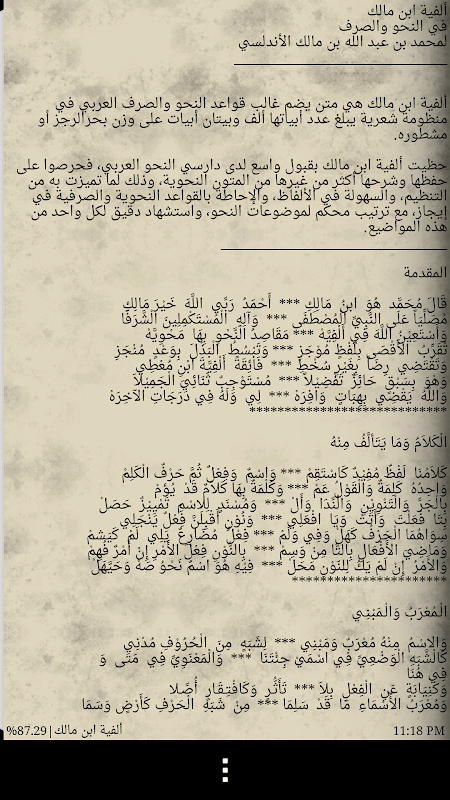 ألفية ابن مالك
في النحو والصرف
لمحمد بن عبد الله بن مالك الأندلسي
ألفية ابن مالك هي متن يضم غالب قواعد النحو والصرف العربي في
منظومة شعرية يبلغ عدد أبياتها ألف وبيتان أبيات على وزن بحرالرجز أو
مشطوره.
حظيت ألفية ابن مالك بقبول واسع لدى دارسي النحو العربي، فحرصوا على
حفظها وشرحها أكثر من غيرها من المتون النحوية، وذلك لما تميزت به من
التنظيم، والسهولة في الألفاظ، والإحاطة بالقواعد النحوية والصرفية في
إيجاز، مع ترتيب محكم لموضوعات النحو، واستشهاد دقيق لكل واحد من
هذه المواضيع.
المقدمة
قَالَ مُحَمَّد هُوَ ابنُ مَالِكِ *** أَحْمَدُ رَبِّي اللَّهَ خَيْرَ مَالِكِ
مُصَلِّيَاً عَلَى النَّبِيِّ الْمُصْطَفَى *** وَآلِهِ الْمُسْتَكْمِلِينَ الْشَّرَفَا
وَأَسْتَعِيْنُ اللَّهَ فِي أَلْفِيَّهْ *** مَقَاصِدُ النَّحْوِ بِهَا مَحْوِيَّهْ
تُقَرِّبُ الأَقْصَى بِلَفْظٍ مُوْجَزِ *** وَتَبْسُطُ الْبَذْلَ بِوَعْدٍ مُنْجَزِ
وَتَقْتَضِي رِضَاً بِغَيْرِ سُخْطِ *** فَائِقَةً أَلْفِيَّةَ ابْنِ مُعْطِي
وَهْوَ بِسَبْقٍ حَائِزٌ تَفْضِيْلاً *** مُسْتَوْجِبٌ ثَنَائِيَ الْجَمِيْلاَ
وَاللَّهُ يَقْضِي بِهِبَاتٍ وَافِرَهْ *** لِي وَلَهُ فِي دَرَجَاتِ الآخِرَهْ
****************************
الْكَلاَمُ وَمَا يَتَأَلَّفُ مِنْهُ
كَلاَمُنَا لَفْظٌ مُفِيْدٌ كَاسْتَقِمْ *** وَاسْمٌ وَفِعْلٌ ثُمَّ حَرْفٌ الْكَلِمْ
وَاحِدُهُ كَلِمَةٌ وَالْقَوْلُ عَمْ *** وَكَلْمَةٌ بِهَا كَلاَمٌ قَدْ يُؤَمْ
بِالْجَرِّ وَالْتَّنْوِيْنِ وَالْنِّدَا وَأَلْ *** وَمُسْنَدٍ لِلاسْمِ تَمْيِيْزٌ حَصَلْ
بِتَا فَعَلْتَ وَأَتَتْ وَيَا افْعَلِي *** وَنُوْنِ أَقْبِلَنَّ فِعْلٌ يَنْجَلِي
سِوَاهُمَا الْحَرْفُ كَهَلْ وَفِي وَلَمْ *** فِعْلٌ مُضَارِعٌ يَلِي لَمْ كَيَشَمْ
وَمَاضِيَ الأَفْعَالِ بِالتَّا مِزْ وَسِمْ *** بِالْنُّوْنِ فِعْلَ الأَمْرِ إِنْ أَمْرٌ فُهِمْ
وَالأَمْرُ إِنْ لَمْ يَكُ لِلنُّوْنِ مَحَلْ *** فِيْهِ هُوَ اسْمٌ نَحْوُ صَهْ وَحَيَّهَلْ
**************************
الْمُعْرَبُ وَالْمَبْنِي
وَالاِسْمُ مِنْهُ مُعْرَبٌ وَمَبْنِي *** لِشَبَهٍ مِنَ الْحُرُوْفِ مُدْنِي
كَالْشَّبَهِ الْوَضْعِيِّ فِي اسْمَيْ جِئْتَنَا *** وَالْمَعْنَوِيِّ فِي مَتَى وَ
فِي هُنَا
وَكَنِيَابَةٍ عَنِ الْفِعْلِ بِلاَ *** تَأَثُّرٍ وَكَافْتِقَارٍ أُصِّلا
وَمُعْرَبُ الأَسْمَاءِ مَا قَدْ سَلِمَا *** مِنْ شَبَهِ الْحَرْفِ كَأَرْضٍ وَسَمَا
%87.29|ألفية ابن مالك
11:18 PM